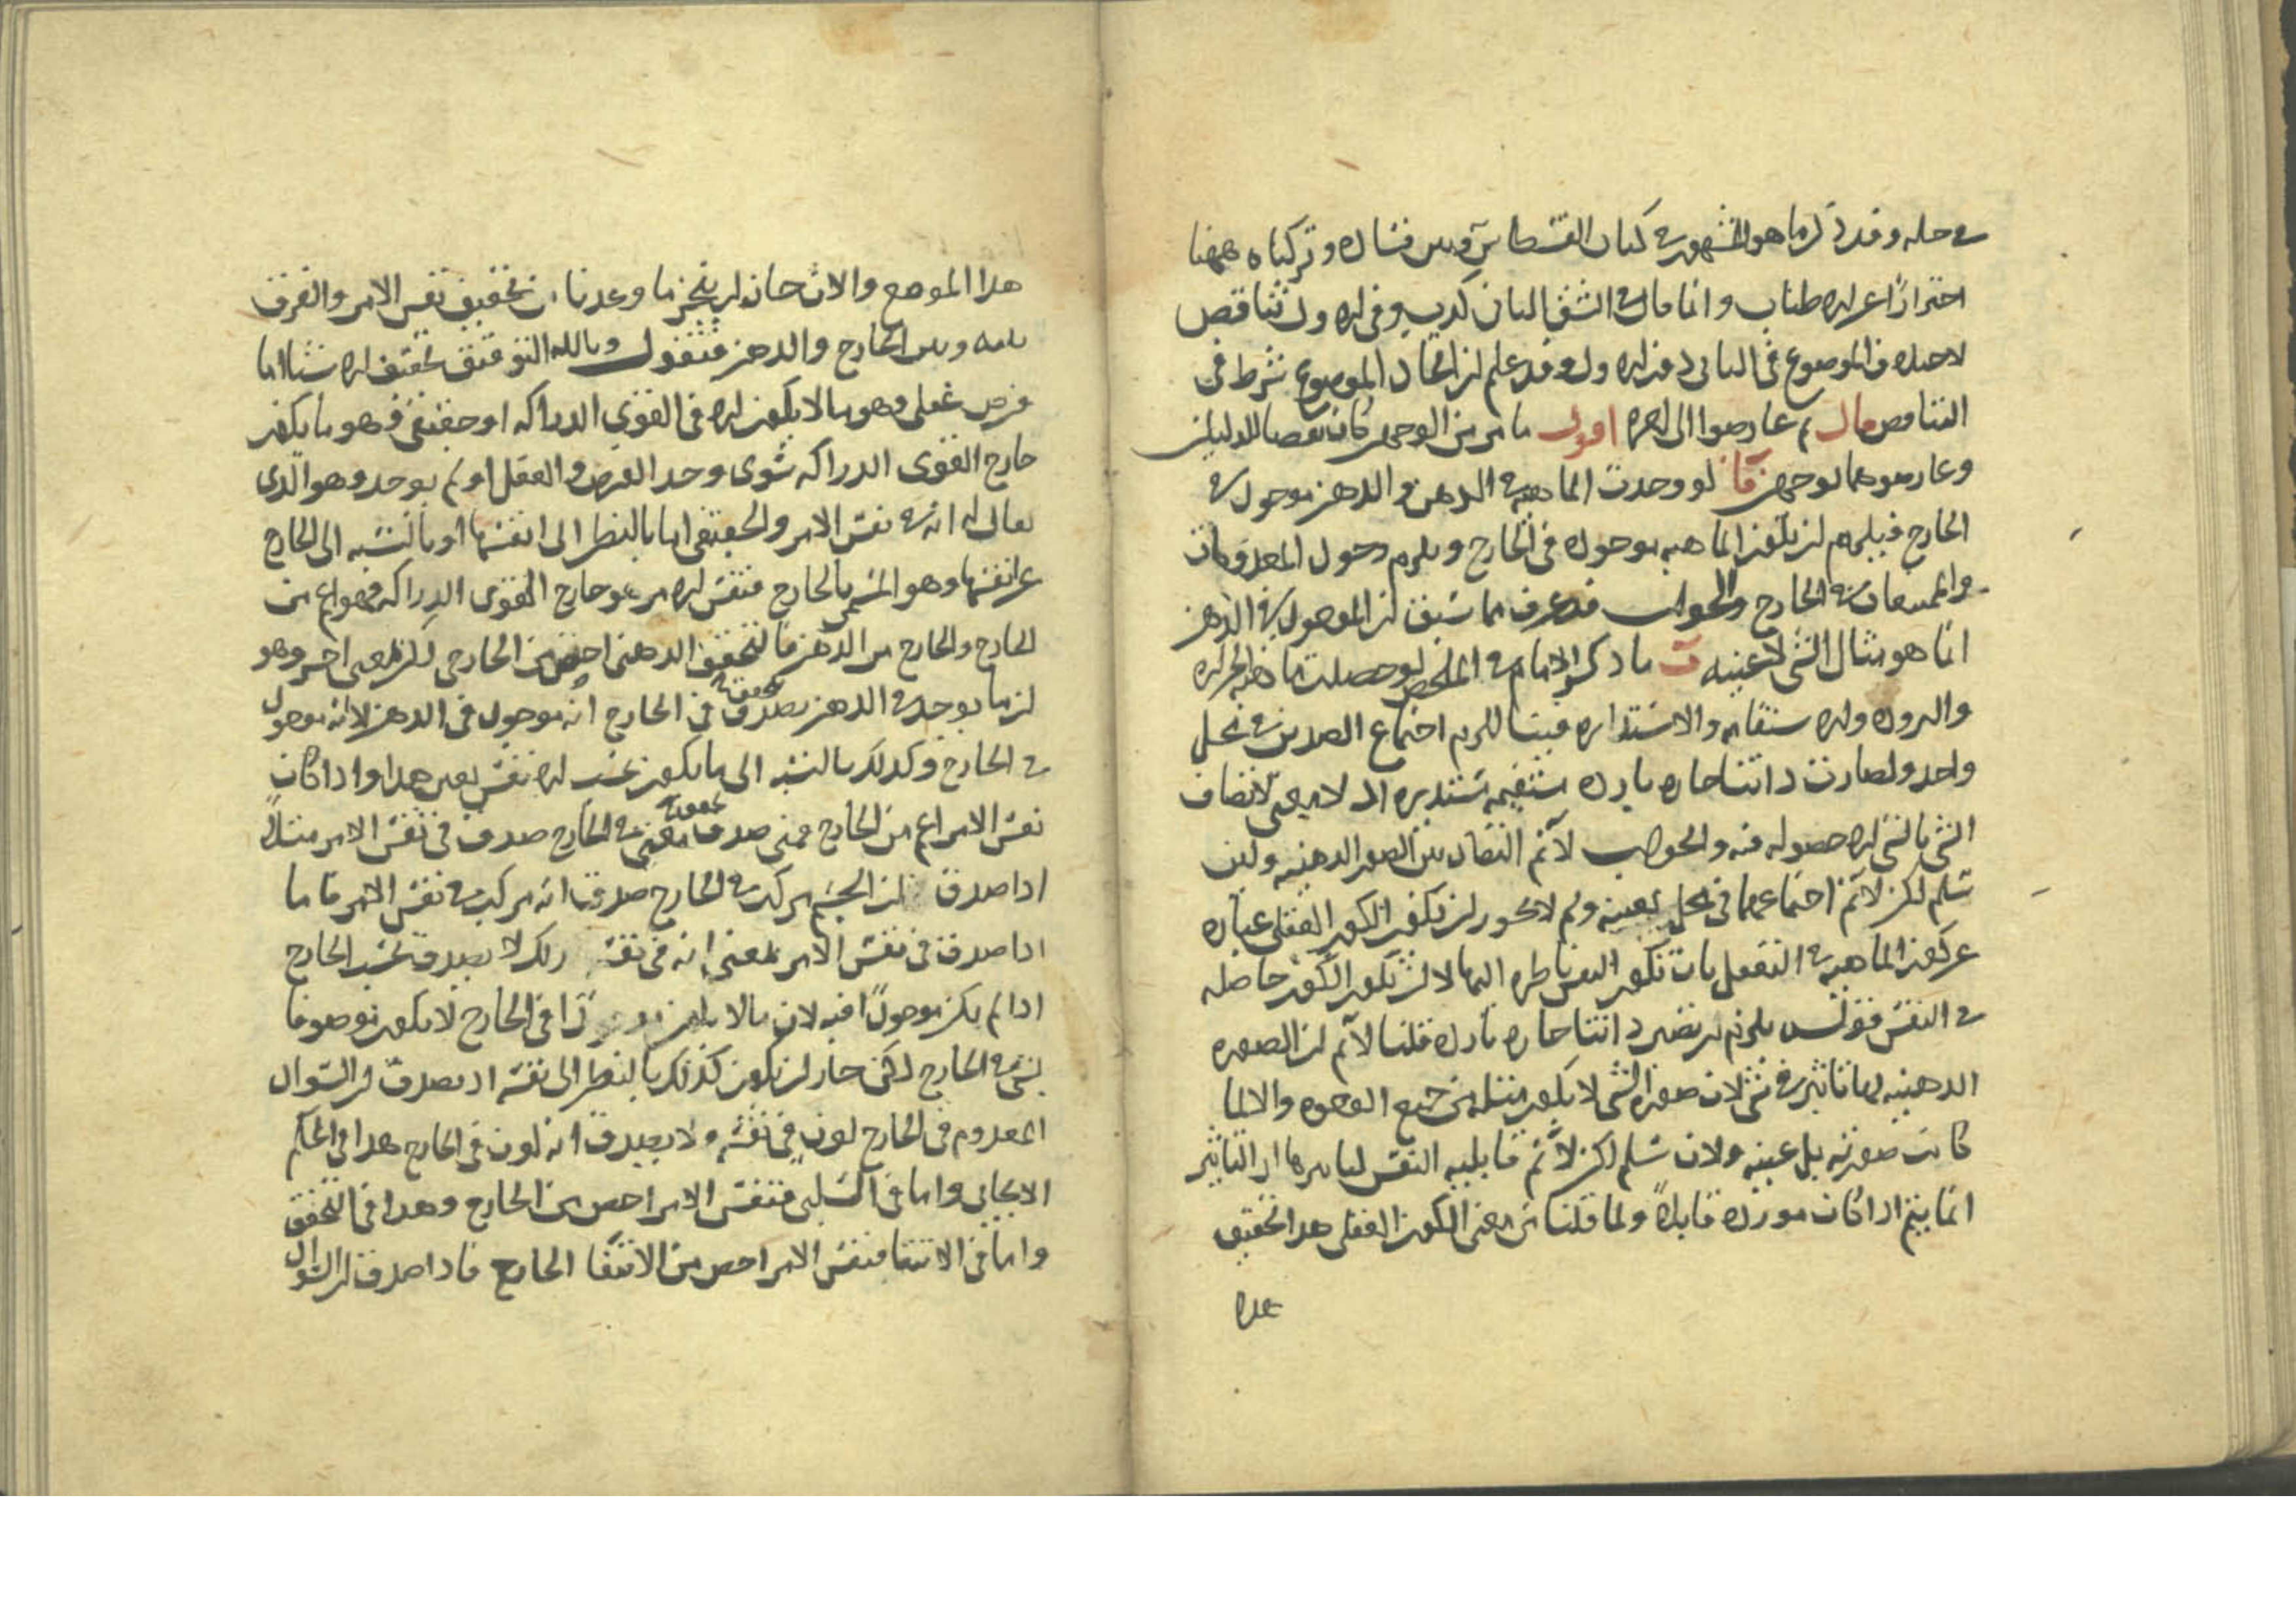 في حله وقد ذكر ما هو المشهور في كتاب القسطاس وبين فساده وتركناه ههنا
احترازا عن الاطناب وانما قال في الشق الثاني كذب وفي الاول تناقض
لاختلاف الموضوع في الثاني دون الاول وقد علم ان اتحاد الموضوع شرط في
التناقض قال ثم عارضوا الى اخره اقول ما مر من الوجهين كان نقضا للدليلين
وعارضوهما بوجهين آ لو وجدت الماهية في الذهن والذهن موجود في
الخارج فيلزم ان تكون الماهية موجودة في الخارج ويلزم دخول المعدومات
والممتنعات في الخارج والجواب قد عرف مما سبق ان الموجود في الذهن
انما هو مثال الشي لا عينه ب ما ذكره الامام في الملخص لو حصلت ماهية الحرارة
والبرودة والاستقامة والاستدارة فينا للزم اجتماع الضدين في محل
واحد ولصارت ذاتنا حارة باردة مستقيمة مستديرة اذ لا معنى لاتصاف
الشي بالشي الا حصوله فيه والجواب لا نم التضاد بين الصور الذهنية ولئن
سلم لكن لا نم اجتماعهما في محل بعينه ولم لا يجوز ان يكون الكون العقلي عبارة
عن كون الماهية في التعقل بان تكون النفس ناظرة اليها لا ان تكون الكون حاصلة
في النفس فقوله يلزم ان تصير ذاتنا حارة باردة قلنا لا نم ان الصورة
الذهنية لها تاثير في شي لان صورة الشي لا يكون مثله من جميع الوجوه والا لما
كانت صورته بل عينه ولان سلم لكن لا نم قابلية النفس لتاثيرها اذ التاثير
انما يتم اذا كانت مورده قابلا ولما قلنا من معنى الكون العقلي هذا تحقيق
هذا
هذا الموضع والان حان ان ينجز ما وعدنا من تحقيق نفس الامر والفرق
بينه وبين الخارج والذهن فنقول وبالله التوفيق تحقق الاشيا اما
فرضي عقلي وهو ما لا يكون الا في القوى الدراكة او حقيقي فهو ما يكون
خارج القوى الدراكة سوى وجد الفرض والعقل او لم يوجد وهو الذي
يقال له انه في نفس الامر والحقيقي اما بالنظر الى انفسها او بالنسبه الى الخارج
عن انفسها وهو المسمى بالخارج فنفس الامر هو خارج القوى الدراكة فهو اعم من
الخارج والخارج من الذهن فالتحقق الذهني اخص من الخارجي لا بمعنى اخر وهو
ان ما يوجد في الذهن يصدق تحققه في الخارج انه موجود في الذهن لانه موجود
في الخارج وكذلك بالنسبه الى ما يكون بحسب الا نفس بعين هذا واذا كان
نفس الامر اعم من الخارج فمتى صدق تحققه معنى في الخارج صدق في نفس الامر مثلا
اذا صدق ان الجسم مركب في الخارج صدق انه مركب في نفس الامر فاما
اذا صدق في نفس الامر بمعنى انه في نفسه ذلك لا يصدق بحسب الخارج
اذا لم يكن موجودا فيه لان ما لا يكون موجودا في الخارج لا يكون موصوفا
بشي في الخارج لكن جاز ان يكون كذلك بالنظر الى نفسه اذ يصدق ان السواد
المعدوم في الخارج لون في نفسه ولا يصدق انه لون في الخارج هذا في الحكم
الايجابي واما في السلبي فنفس الامر اخص من الخارج وهذا في التحقق
واما في الانتفا فنفس الامر اخص من الانتفا الخارج فاذا صدق ان السواد